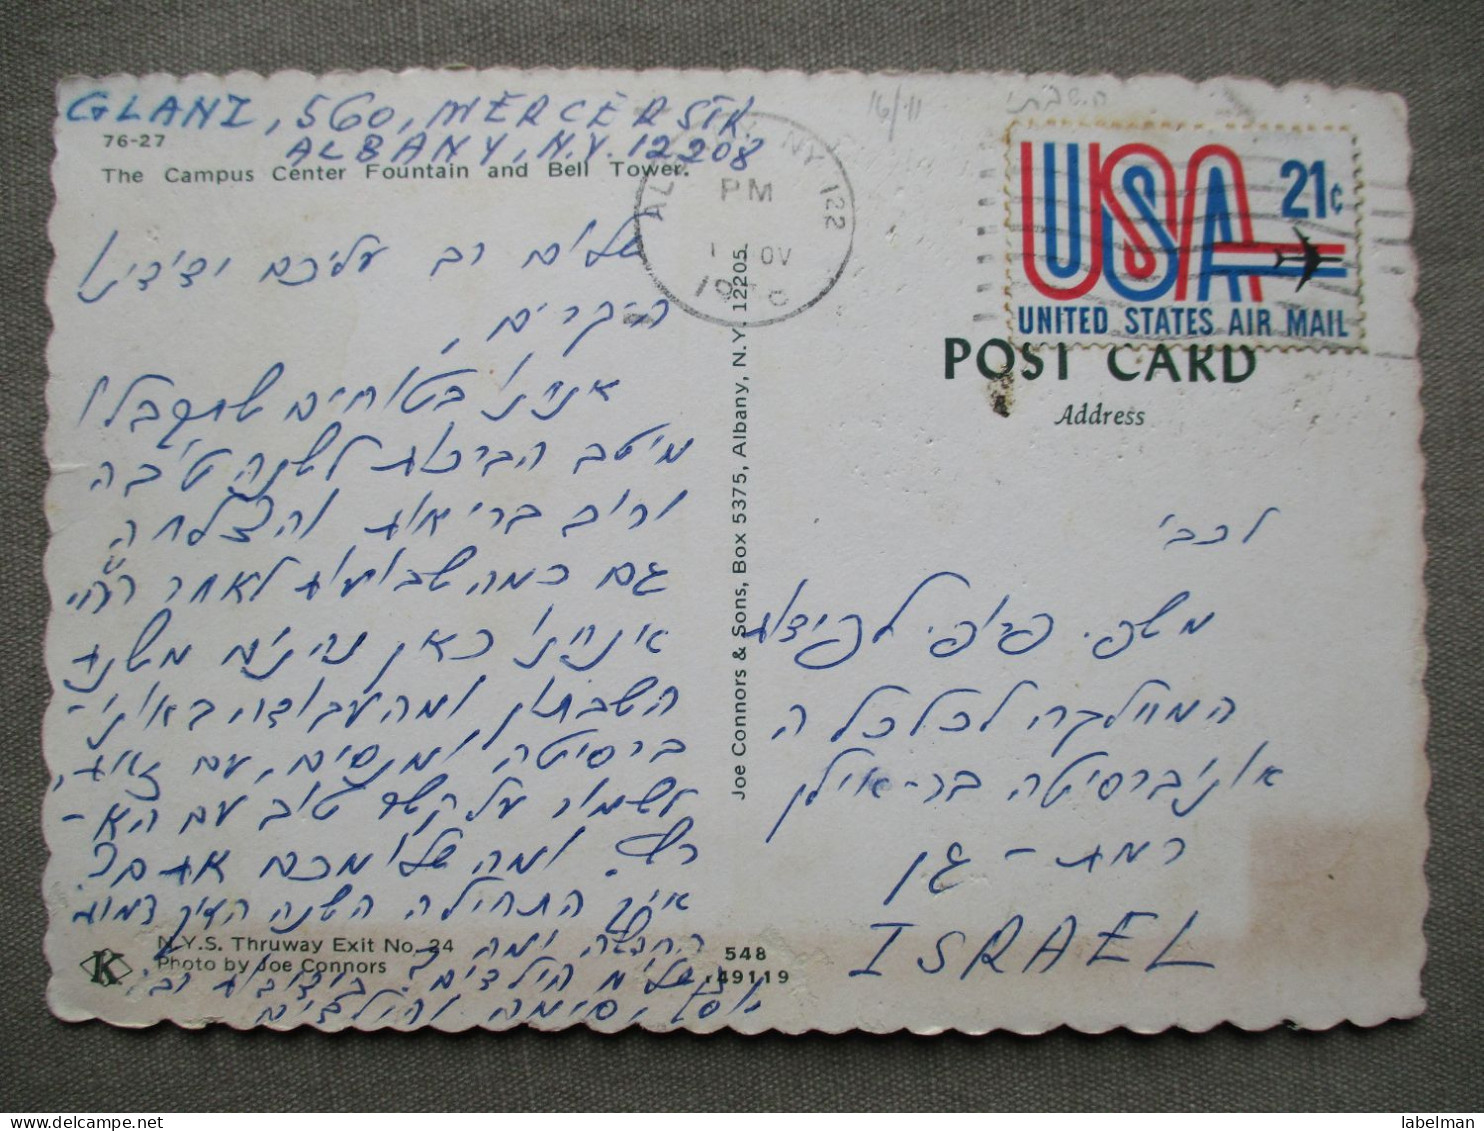 GLANZ, 560, MERCER STR
ALBANY, N.Y. 12208
76-27
The Campus Center Fountain and Bell Tower.
שלום רב עליכם ידידינו
היקרים,
אנו בטוחים שתקבלו
מיטב הברכות לשנה טובה
ורוב בריאות והצלחה
גם כמה שבועות לאחר
אנו כאן נהנים משנת
השבתון ומהעבודה באוני-
ברסיטה ומנסים, עם זאת,
לשמור על קשר טוב עם הא-
רץ. ומה שלומכם אתם?
איך התחילה השנה
ומה
שלום הילדים? בידידות רבה
יוסף, סימה והילדים
N.Y.S. Thruway Exit No. 24
Photo by Joe Connors
K
548
49119
Joe Connors & Sons, Box 5375, Albany, N.Y. 12205
PM
NY 122
USA 21c
UNITED STATES AIR MAIL
POST CARD
Address
16/11
לכבי
משפ. פרופ.
המחלקה לכלכלה
אוניברסיטה בר-אילן
רמת-גן
ISRAEL
labelman